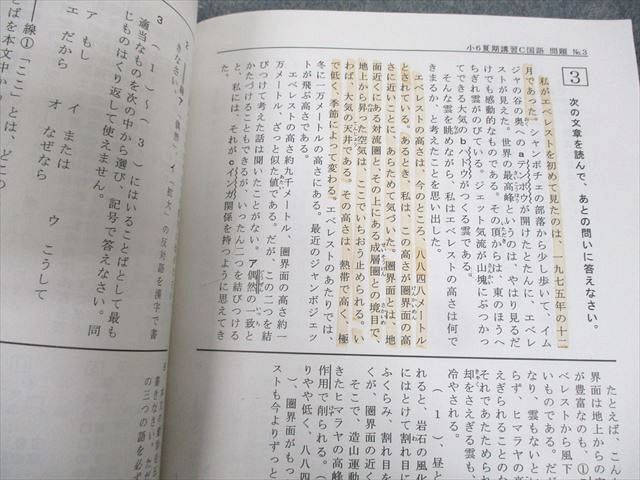 小6夏期講習C国語 問題 №3
3 次の文章を読んで、あとの問いに答えなさい。
私がエベレストを初めて見たのは、一九七五年の十二
月であった。シャンボチェの部落から少し歩いて、イム
ジャの谷の奥へのaテンボウが開けたとたんに、エベレ
ストが見えた。世界の最高峰というのは、やはり見るだ
けでも感動的なものである。その頂からは、東のほうへ
ちぎれ雲がのびている。ジェット気流が山塊にぶつかっ
てできる大気のbハドウがつくる雲である。
そんな雲を眺めながら、私はエベレストの高さは何で
きまるか、と考えたことを思い出した。
エベレストの高さは、今のところ、八八四八メートル
とされている。あるとき、私は、この高さが圏界面の高
さに近いことに、あらためて気づいた。圏界面とは、地
面近くにある対流圏と、その上にある成層圏との境目で、
地上から昇った空気は、ここでいちおう止められる。い
わば、大気の天井である。その高さは、熱帯で高く、極
で低く、季節によって変わる。エベレストのあたりでは、
冬に一万メートルの高さにある。最近のジャンボジェッ
トが飛ぶ高さである。
エベレストの高さ約九千メートル、圏界面の高さ約一
万メートル、ざっと似た値である。だが、この二つを結
びつけて考えた話は聞いたことがない。ア偶然の一致と
かたづけることもできるが、いったん二つを結びつける
と、私には、それがcインガ関係を持つように思えてき
たとえば、こん
界面は地上からの空
が豊富なのも、①
ベレストから風下
いものである。だが
なり、雲もないと
らず、ヒマラヤの高
えぎられることのな
それであたためられ
却をさえぎる雲も、
冷やされる。
（1）、昼と
れると、岩石の風化
にはとけて割れ目に
ふくらみ、割れ目を
くが、圏界面の近く
そこで、造山運動
きたヒマラヤの高峰
作用で削られる。（
りやや低く、八八四
）、圏界面がもっ
ストも今よりずっと
の反対語を漢字で書
きなさい。
3 （1）～（3）にはいることばとして最も
適当なものを次の中から選び、記号で答えなさい。同
じものはくり返して使えません。
ア もし イ または ウ こうして
エ だから オ なぜなら
線①「ここ」とは、どこ
ばを本文中か